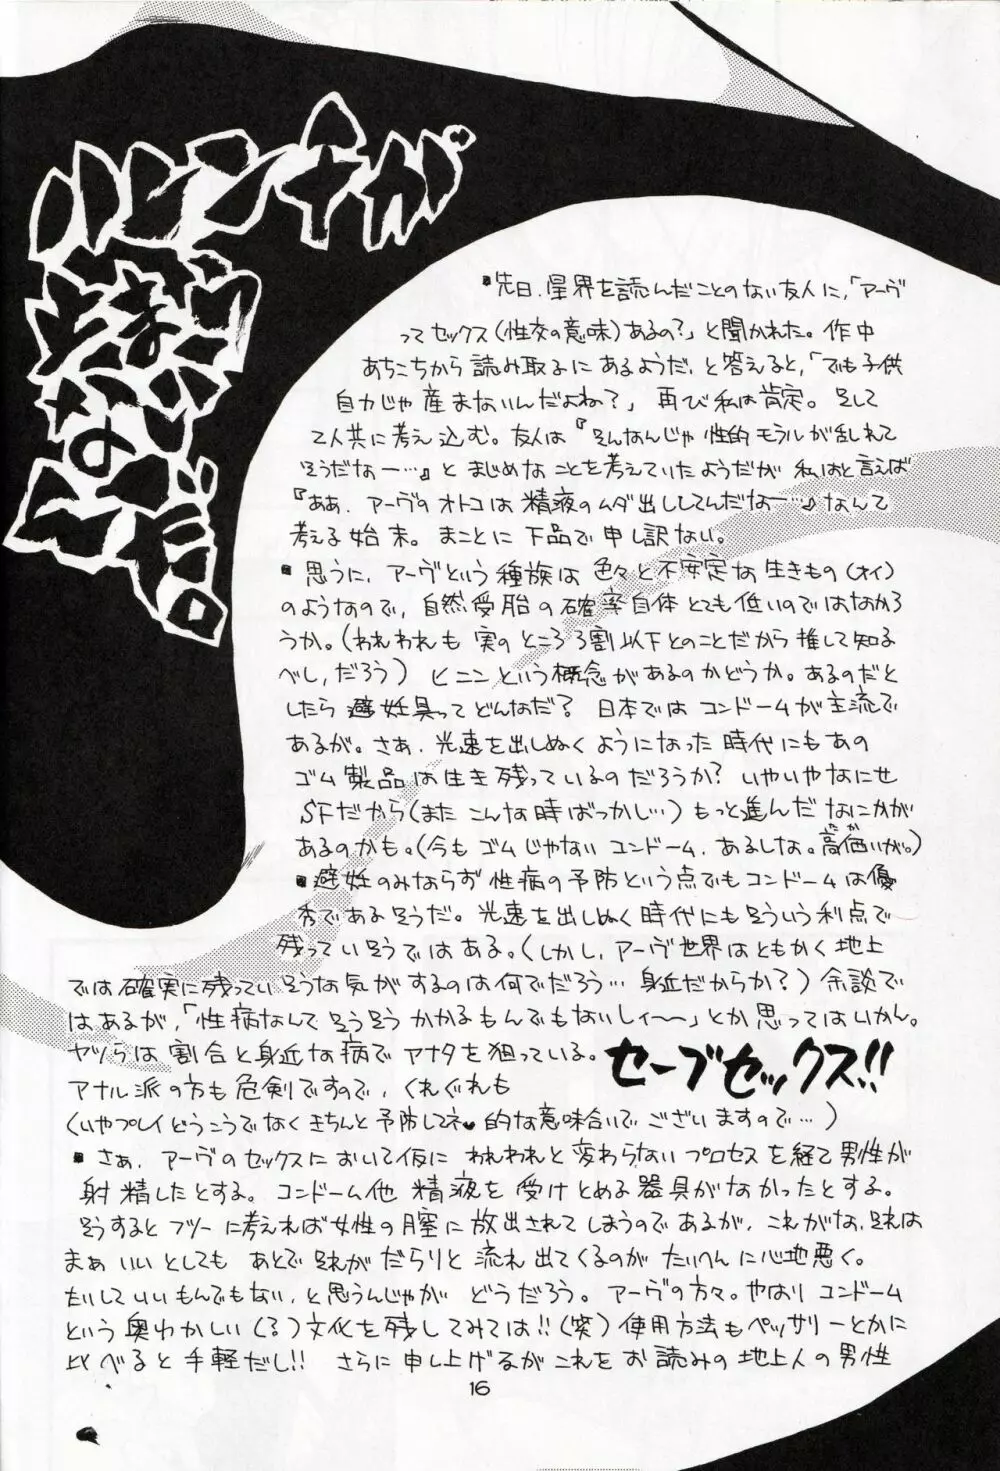 リビドーが
とまら
ない
ぜ。
■先日、星界を読んだことのない友人に、「アーヴ
ってセックス(性交の意味)あるの?」と聞かれた。作中
あちこちから読み取るにあるようだ、と答えると、「でも子供
自力じゃ産まないんだよね?」 再び私は肯定。そして
2人共に考え込む。友人は『そんなんじゃ性的モラルが乱れて
そうだなー…』とまじめなことを考えていたようだが 私はと言えば
『ああ、アーヴのオトコは精液のムダ出ししてんだなー…』なんて
考える始末。まことに下品で申し訳ない。
■思うに、アーヴという種族は色々と不安定な生きもの(オイ)
のようなので、自然受胎の確率自体とても低いのではなかろ
うか。(われわれも実のところ3割以下とのことだから推して知る
べし、だろう) ヒニンという概念があるのかどうか。あるのだと
したら避妊具ってどんなだ? 日本ではコンドームが主流で
あるが。さあ、光速を出しぬくようになった時代にもあの
ゴム製品は生き残っているのだろうか? いやいやなにせ
SFだから(またこんな時ばっかし…)もっと進んだなにかが
あるのかも。(今もゴムじゃないコンドーム、あるしな。高価いが。)
■避妊のみならず性病の予防という点でもコンドームは優
秀であるそうだ。光速を出しぬく時代にもそういう利点で
残っていそうではある。(しかし、アーヴ世界はともかく地上
では確実に残っていそうな気がするのは何でだろう…身近だからか?)余談で
はあるが、「性病なんてそうそうかかるもんでもないしィ〜〜」とか思ってはいかん。
ヤツらは割合と身近な病でアナタを狙っている。 セーブセックス!!
アナル派の方も危剣ですので、くれぐれも
(いやプレイどうこうでなくきちんと予防してネ♥的な意味合いでございますので…)
■さあ、アーヴのセックスにおいて仮にわれわれと変わらないプロセスを経て男性が
射精したとする。コンドーム他精液を受けとめる器具がなかったとする。
そうするとフツーに考えれば女性の膣に放出されてしまうのであるが、これがな、それは
まぁいいとしてもあとでそれがだらりと流れ出てくるのがたいへんに心地悪く。
たいしていいもんでもない、と思うんじゃがどうだろう。アーヴの方々。やはりコンドーム
という奥わかしい(る)文化を残してみては!!(笑)使用方法もペッサリーとかに
比べると手軽だし!! さらに申し上げるがこれをお読みの地上人の男性
16